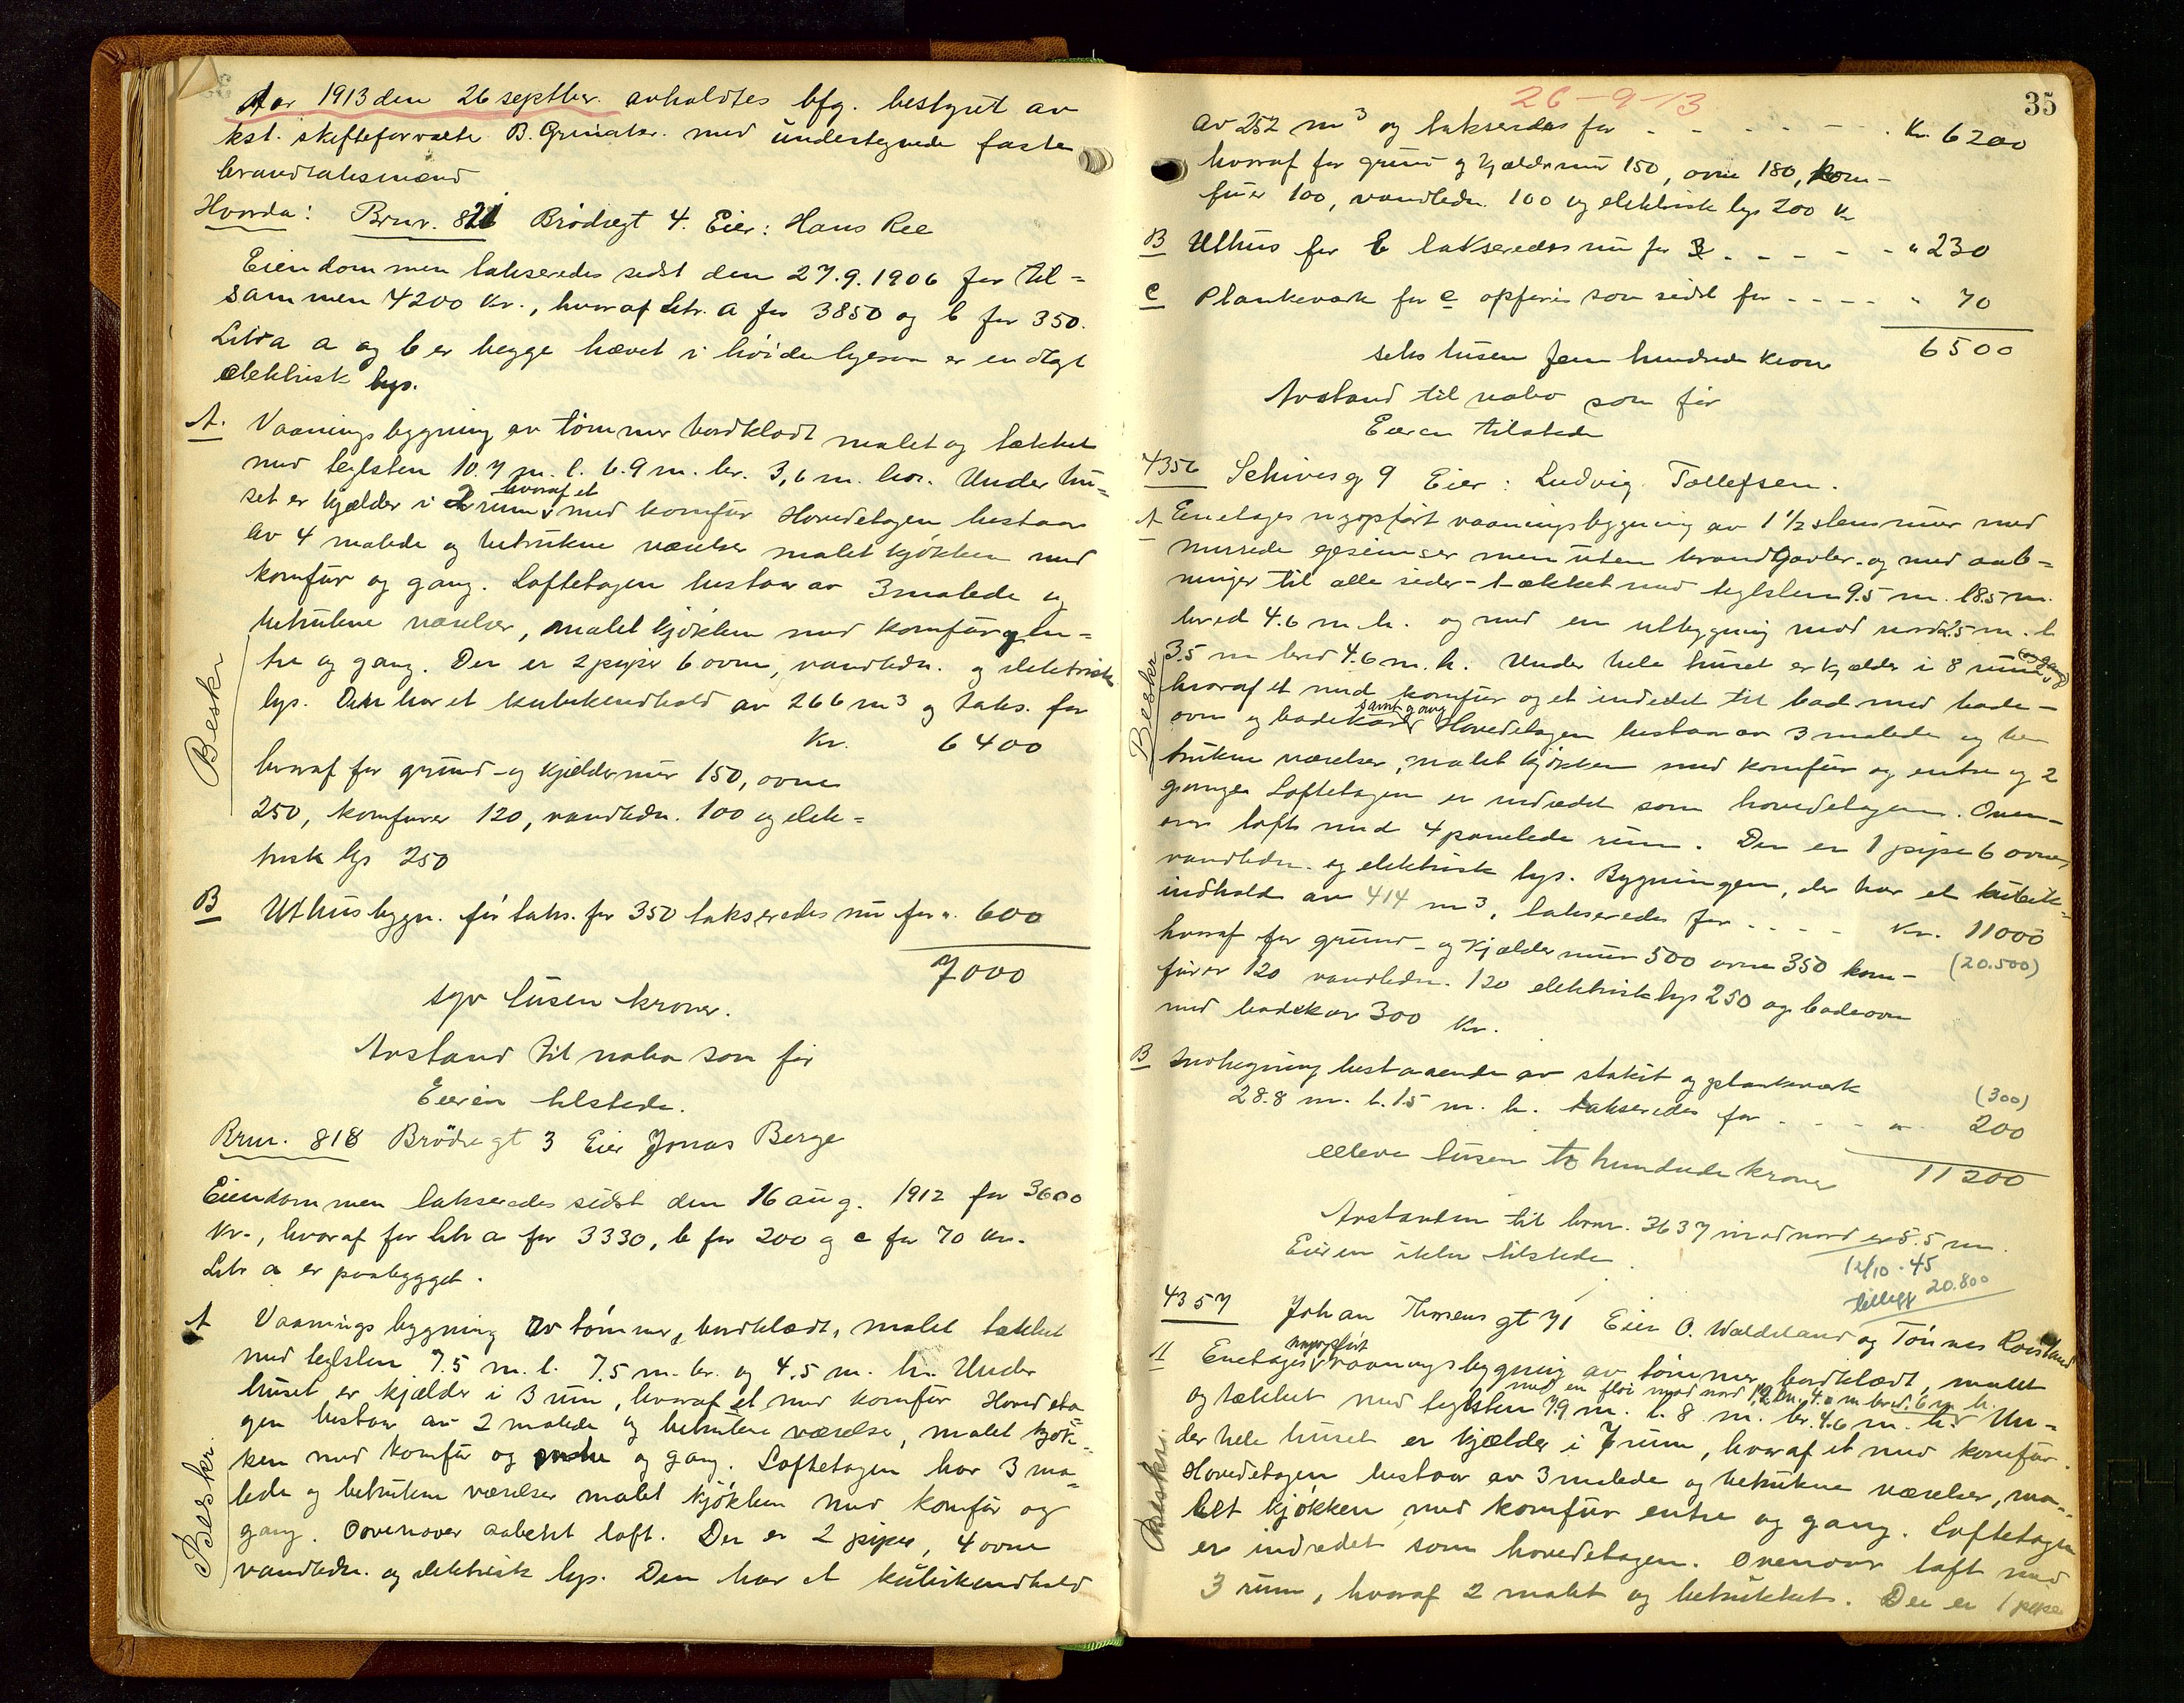 Aar 1913 den 26 septbr. avholdtes bfg. bestyret av
kst. skifteforvalte B. Grimatsr. med undertegnede faste
brandtaksmænd
Hvorda: Brnr. 821 Brödregt 4. Eier: Hans Ree
Eiendommen takseredes sidst den 27.9.1906 for til=
sammen 4200 Kr., hvoraf litr. a for 3850 og b for 350.
Litra a og b er begge hævet i höide ligesom er indlagt
elektrisk lys.
A. Vaaningsbygning av tömmer bordklædt malet og tækket
med teglsten 10.7 m. l. 6.9 m. br. 3,6 m. hö. Under hu=
hvoraf et
set er kjælder i 2 rum med komfur Hovedetagen bestaar
av 4 malede og betrukne værelser malet kjökken med
komfur og gang. Loftetagen bestaar av 3 malede og
betrukne værelser, malet kjökken med komfur en=
tre og gang. Der er 2 piper 6 ovne, vandledn. og elektrisk
lys. Den har et kubikindhold av 266 m³ og taks. for
Kr. 6400
Beskr
hvoraf for grund- og kjældermur 150, ovne
250, komfurer 120, vandledn. 100 og elek=
trisk lys 250
B Uthusbygn. för taks. for 350 takseredes nu for ". 600
7000
syv tusen kroner.
Avstand til nabo som för
Eieren tilstede.
Brnr. 818 Brödregt 3 Eier Jonas Berge
Eiendommen takseredes sidst den 16 aug. 1912 for 3600
Kr., hvoraf for litr a for 3330, b for 200 og c for 70 Kr.
Litr a er paabygget.
A Vaaningsbygning av tömmer, bordklædt, malet tækket
med teglsten 7.5 m. l. 7.5 m. br. og 4.5 m. h. Under
huset er kjælder i 3 rum, hvoraf et med komfur Hovedeta
gen bestaar av 2 malede og betrukne værelser, malet kjök=
ken med komfur og entre og gang. Loftetagen har 3 ma=
lede og betrukne værelser malet kjökken med komfur og
gang. Ovenover aabent loft. Der er 2 piper, 4 ovne
vandledn. og elektrisk lys. Den har et kubikindhold
Beskr.
26-9-13
35
av 252 m³ og takseredes for - - - - - Kr. 6200
hvoraf for grund og kjældermur 150, ovne 180, kom-
furer 100, vandledn. 100 og elektrisk lys 200 Kr
B Uthus for b takseredes nu for - - - - - " 230
C Plankeværk for c opföres som sidst for - - - - " 70
6500
seks tusen fem hundrede kroner
Avstand til nabo som för
Eieren tilstede
4356 Schivesg 9 Eier: Ludvig Tollefsen.
A Enetages nyopfört vaaningsbygning av 1 1/2 stens mur med
murede gesimser men uten brandgavler og med aab=
ninger til alle sider - tækket med teglsten 9.5 m. l 8.5 m.
bred 4.6 m. h. og med en utbygning mod nord 2.5 m. l.
3.5 m bred 4.6 m. h. Under hele huset er kjælder i 8 rum og gang
hvoraf et med komfur og et indredet til bad med bade-
samt gang
ovn og badekar Hovedetagen bestaar av 3 malede og be
trukne værelser, malet kjökken med komfur og entre og 2
ganger Loftetagen er indredet som hovedetagen. Oven-
over loft med 4 panelede rum. Der er 1 pipe 6 ovner,
vandledn. og elektrisk lys. Bygningen, der har et kubik=
indhold av 414 m³, takseredes for - - - - Kr. 11000
Beskr
hvoraf for grund- og kjældermur 500 ovne 350 kom- (20.500)
furer 120 vandledn. 120 elektrisk lys 250 og badeovn
med badekar 300 Kr.
B Indhegning bestaaende av stakit og plankeværk
(300)
28.8 m. l. 1.5 m. h. takseredes for - - - " 200
elleve tusen to hundrede kroner 11200
Avstanden til brnr. 3637 mod nord er 5.5 m.
Eieren ikke tilstede
12/10 - 45
tillegg 20.800
4357 Johan Thorsens gt 71 Eier O. Waldeland og Tönnes Roisland
nyopfört
A Enetages vaaningsbygning av tömmer, bordklædt, malet
med en flöi mod nord 1,2 m l. 4.0 m. bred. 6 m h.
og tækket med teglsten 7.9 m. l. 8 m. br. 4.6 m. h. Un-
der hele huset er kjælder i 7 rum, hvoraf et med komfur.
Hovedetagen bestaar av 3 malede og betrukne værelser, ma-
let kjökken med komfur entre og gang. Loftetagen
er indredet som hovedetagen. Ovenover loft med
3 rum, hvoraf 2 malet og betrukket. Der er 1 pipe
Beskr.